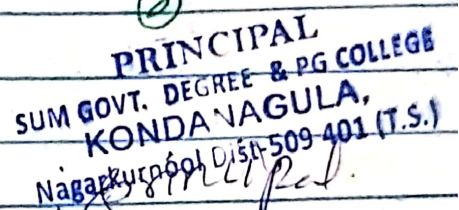 2
PRINCIPAL
SUM GOVT. DEGREE & PG COLLEGE
KONDANAGULA,
Nagarkurnool Dist-509 401 (T.S.)